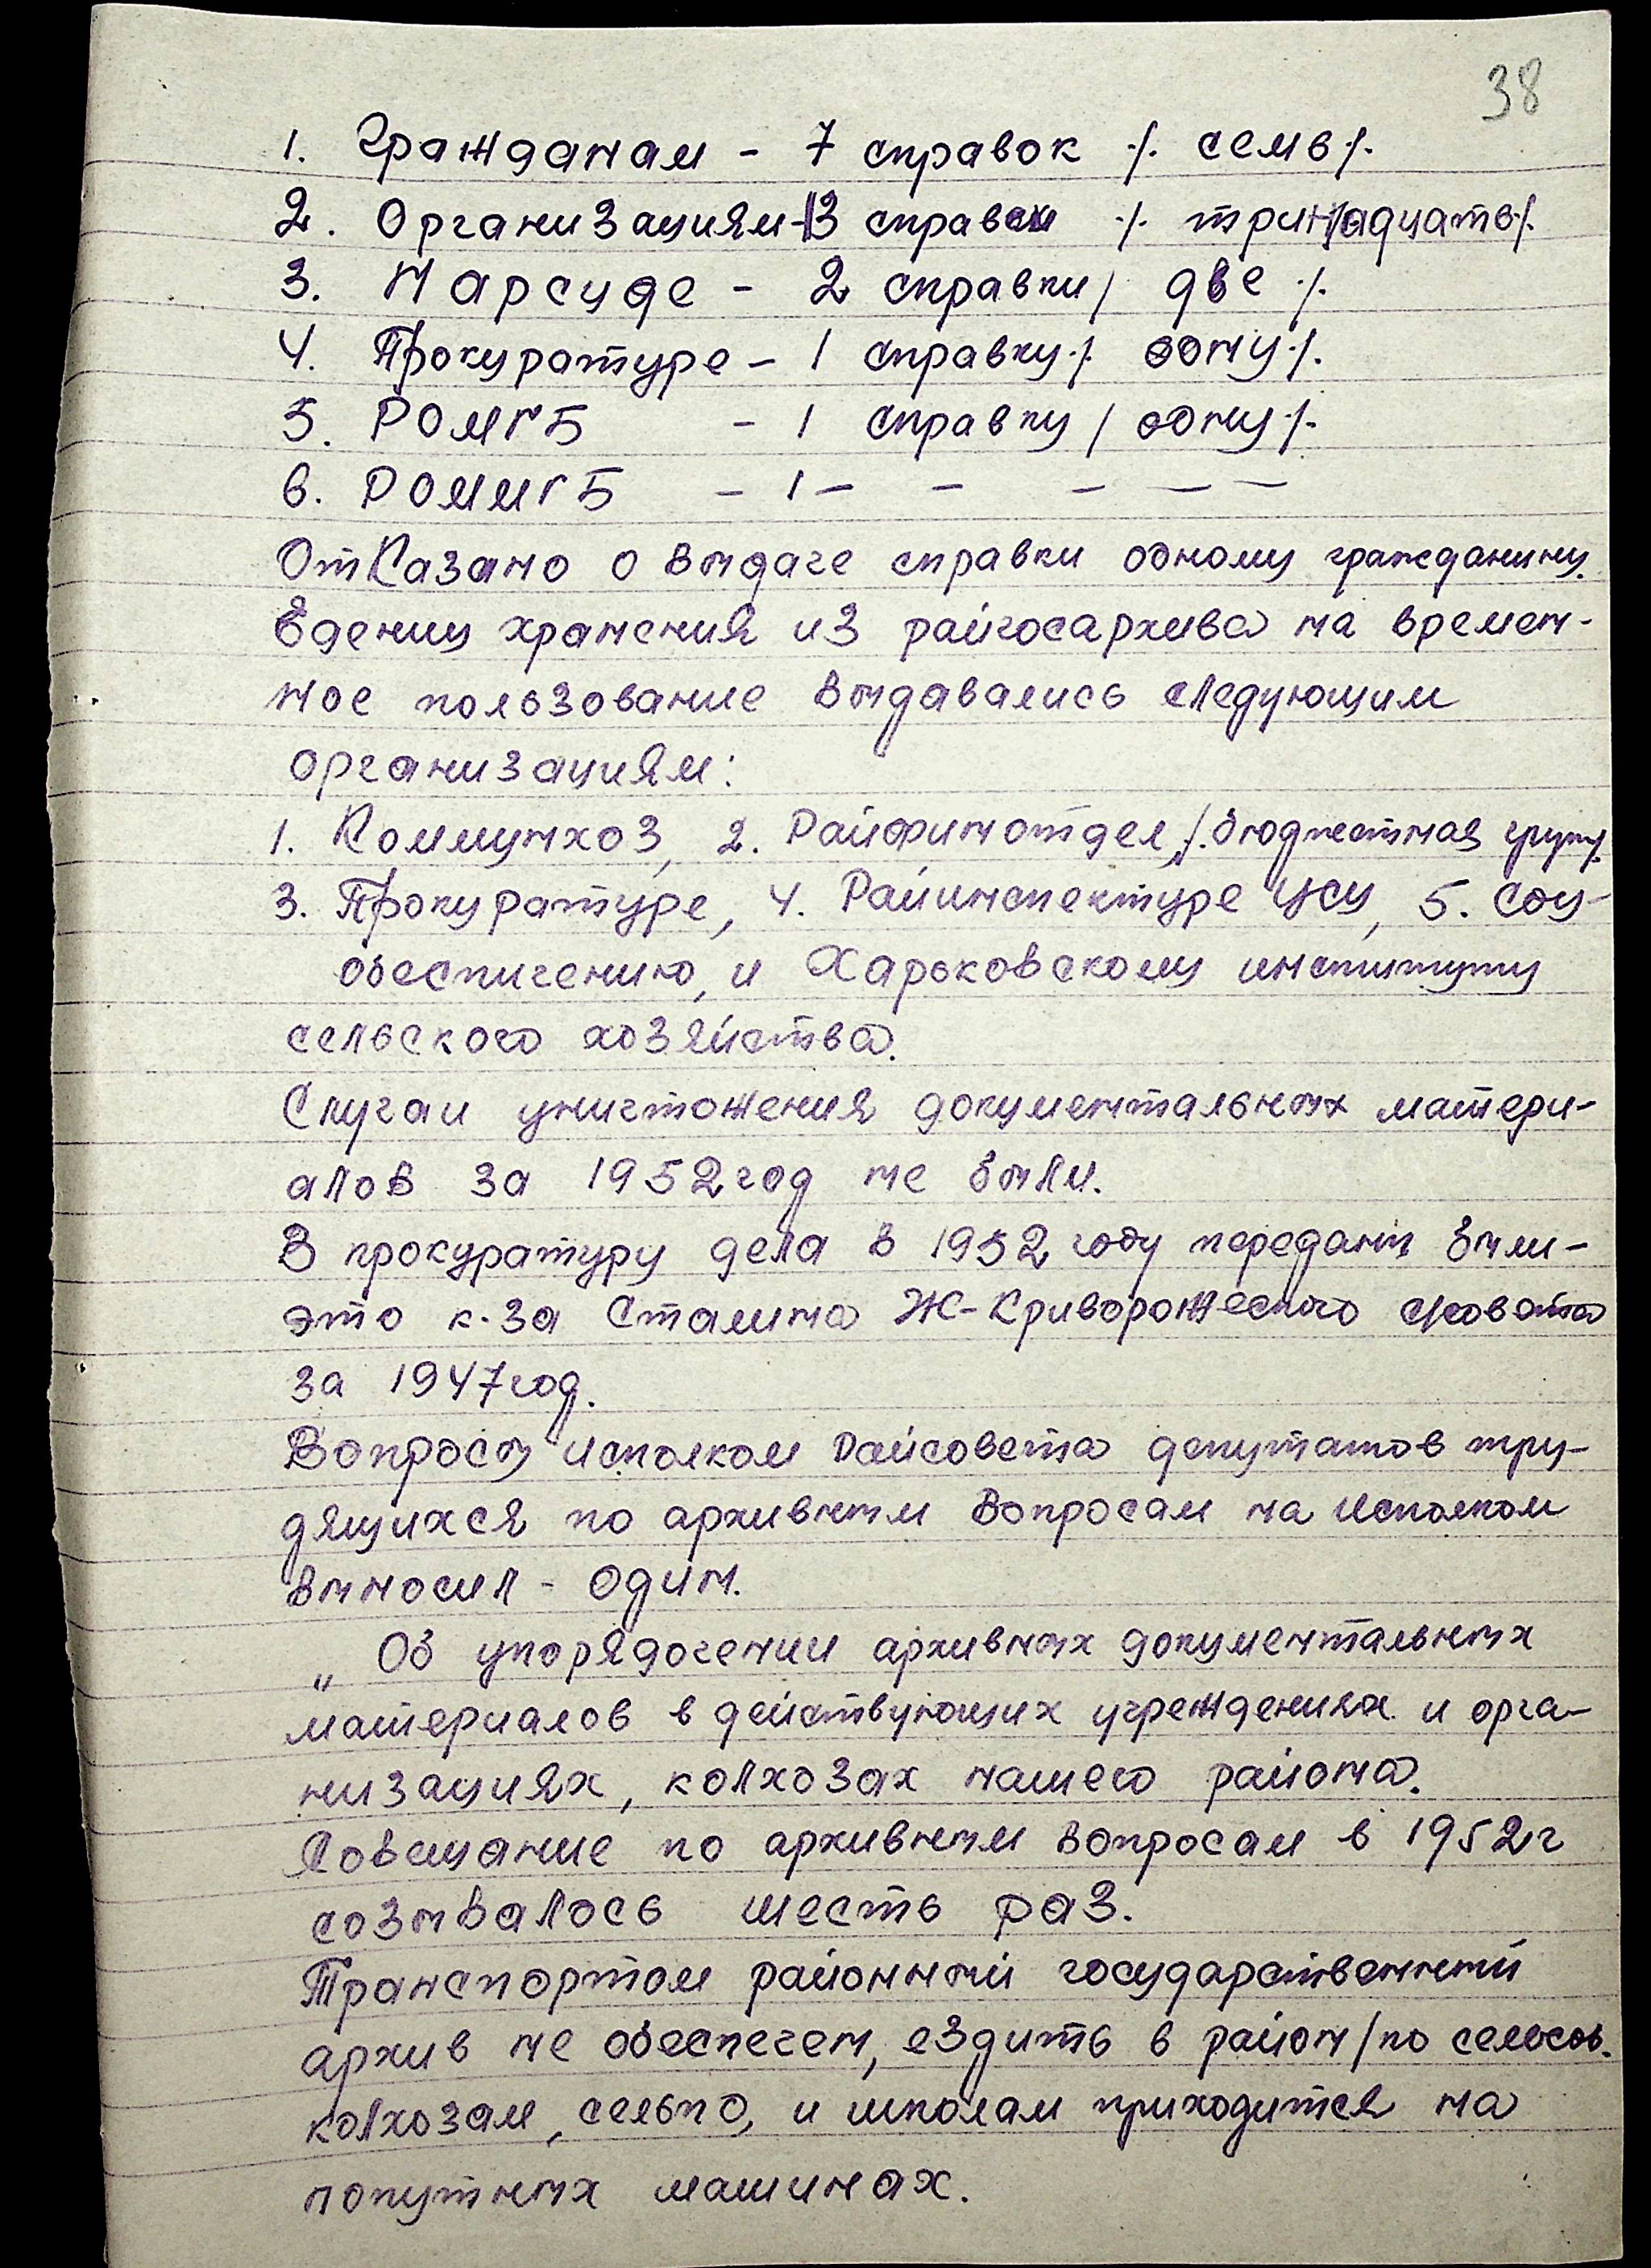 38
1. Гражданам - 7 справок ./. семь ./.
2. Организациям - 13 справок ./. тринадцать ./.
3. Нарсуде - 2 справки / две ./.
4. Прокуратуре - 1 справку ./. одну ./.
5. РОМГБ - 1 справку / одну ./.
6. РОМИГБ - 1 - - - - -
Отказано о выдаче справки одному гражданину.
Едениц хранения из райгосархива на времен-
ное пользование выдавались следующим
организациям:
1. Коммунхоз, 2. Райфинотдел, ./. бюджетная групп.
3. Прокуратуре, 4. Райинспектуре ЦСУ, 5. Соц-
обеспичению, и Харьковскому институту
сельского хозяйства.
Случаи уничтожения документальных матери-
алов за 1952 год не были.
В прокуратуру дела в 1952 году переданы были -
это к-за Сталина Ж-Криворожского с/совета
за 1947 год.
Вопросы исполком Райсовета депутатов тру-
дящихся по архивным вопросам на исполком
выносил - один.
„Об упорядочении архивных документальных
материалов в действующих учреждениях и орга-
низациях, колхозах нашего района.
Совещание по архивным вопросам в 1952 г
созывалось шесть раз.
Транспортом районный государственный
архив не обеспечен, ездить в район / по сельсов.
колхозам, сельпо, и школам приходится на
попутных машинах.